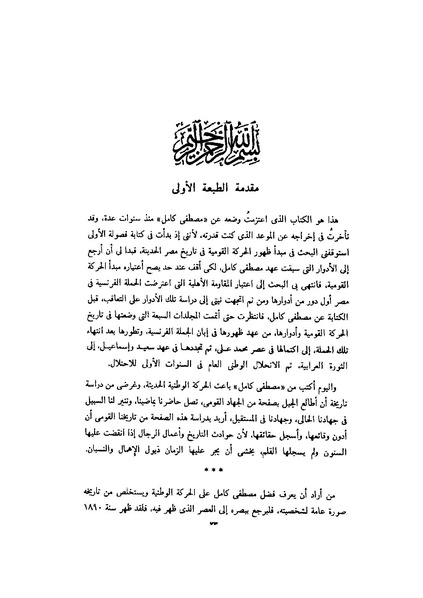 بسم الله الرحمن الرحيم
مقدمة الطبعة الأولى
هذا هو الكتاب الذى اعتزمتُ وضعه عن «مصطفى كامل» منذ سنوات عدة، وقد
تأخرتُ فى إخراجه عن الموعد الذى كنت قدرته، لأننى إذ بدأت فى كتابة فصوله الأولى
استوقفنى البحث فى مبدأ ظهور الحركة القومية فى تاريخ مصر الحديثة، فبدا لى أن أرجع
إلى الأدوار التى سبقت عهد مصطفى كامل، لكى أقف عند حد يصح اعتباره مبدأ الحركة
القومية، فانتهى بى البحث إلى اعتبار المقاومة الأهلية التى اعترضت الحملة الفرنسية فى
مصر أول دور من أدوارها ومن ثم اتجهت نيتى إلى دراسة تلك الأدوار على التعاقب، قبل
الكتابة عن مصطفى كامل، فانتظرت حتى أتممت المجلدات السبعة التى وضعتها فى تاريخ
الحركة القومية وأدوارها، من عهد ظهورها فى إبان الحملة الفرنسية، وتطورها بعد انتهاء
تلك الحملة، إلى اكتمالها فى عصر محمد على، ثم تجددها فى عهد سعيد وإسماعيل، إلى
الثورة العرابية، ثم الانحلال الوطنى العام فى السنوات الأولى للاحتلال.
واليوم أكتب عن «مصطفى كامل» باعث الحركة الوطنية الحديثة، وغرضى من دراسة
تاريخه أن أطالع الجيل بصفحة من الجهاد القومى، تصل حاضرنا بماضينا، وتنير لنا السبيل
فى جهادنا الحالى، وجهادنا فى المستقبل، أريد بدراسة هذه الصفحة من تاريخنا القومى أن
أدون وقائعها، وأسجل حقائقها، لأن حوادث التاريخ وأعمال الرجال إذا انقضت عليها
السنون ولم يسجلها القلم، يخشى أن يجر عليها الزمان ذيول الإهمال والنسيان.
***
من أراد أن يعرف فضل مصطفى كامل على الحركة الوطنية ويستخلص من تاريخه
صورة عامة لشخصيته، فليرجع ببصره إلى العصر الذى ظهر فيه، فلقد ظهر سنة ١٨٩٠